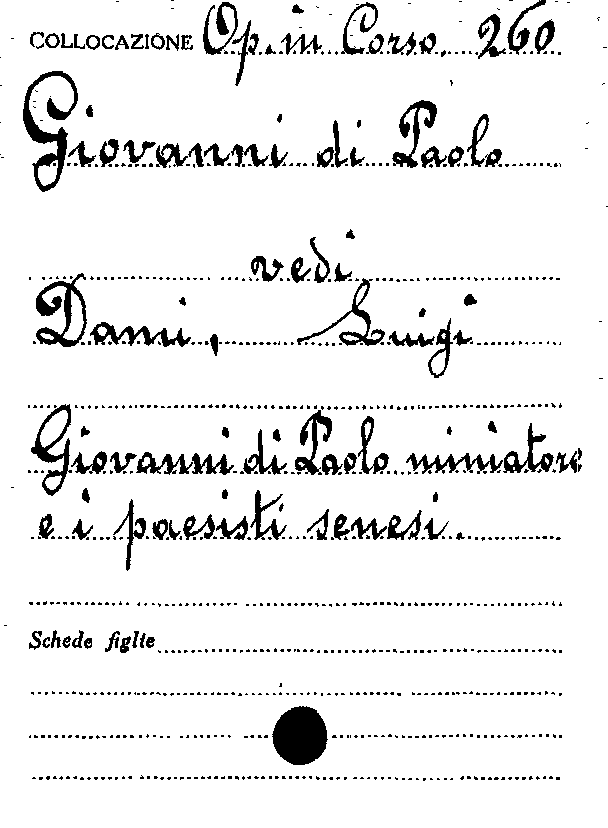 COLLOCAZIONE Op. in Corso. 260
Giovanni di Paolo
vedi
Dami, Luigi
Giovanni di Paolo miniatore
e i paesisti senesi.
Schede figlie